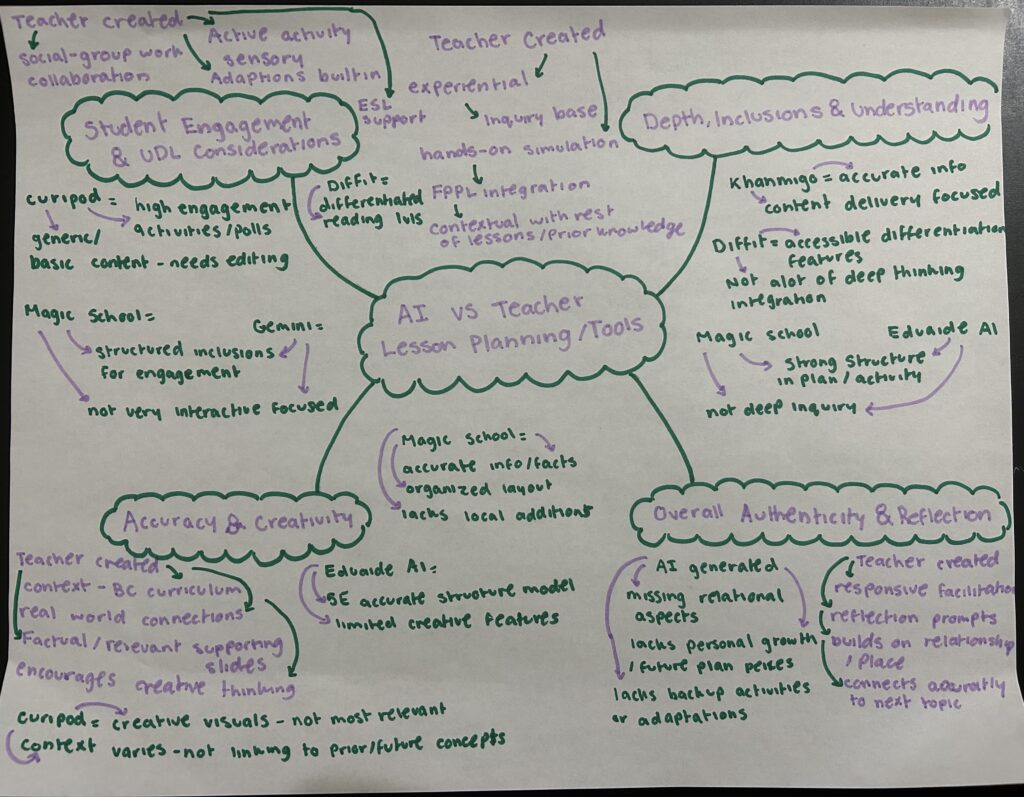 Teacher created
social-group work
collaboration
Active activity
sensory
Adaptions builtin
ESL
support
Student Engagement
& UDL Considerations
curipod = high engagement
activities/polls
generic/
basic content - needs editing
Diffit=
differentiated
reading lvls
Magic School=
Gemini=
structured inclusions
for engagement
not very interactive focused
Teacher Created
experiential
Inquiry base
hands-on simulation
FPPL integration
contextual with rest
of lessons/prior knowledge
Depth, Inclusions & Understanding
Khanmigo = accurate info
content delivery focused
Diffit = accessible differentiation
features
Not alot of deep thinking
integration
Magic school
Eduaide AI
Strong structure
in plan/activity
not deep inquiry
AI vs Teacher
Lesson Planning/Tools
Accuracy & Creativity
Magic School=
accurate info/facts
organized layout
lacks local additions
Teacher created
context - BC curriculum
real world connections
Factual/relevant supporting
slides
encourages creative thinking
Eduaide AI=
5E accurate structure model
limited creative features
curipod = creative visuals - not most relevant
context varies - not linking to prior/future concepts
Overall Authenticity & Reflection
AI generated
missing relational
aspects
lacks personal growth
/future plan
lacks backup activities
or adaptations
Teacher created
responsive facilitation
reflection prompts
builds on relationship
/Place
connects accuratly
to next topic